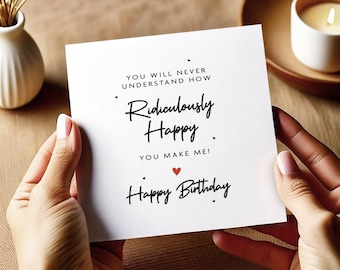 YOU WILL NEVER
UNDERSTAND HOW
Ridiculously
Happy
YOU MAKE ME!
Happy Birthday